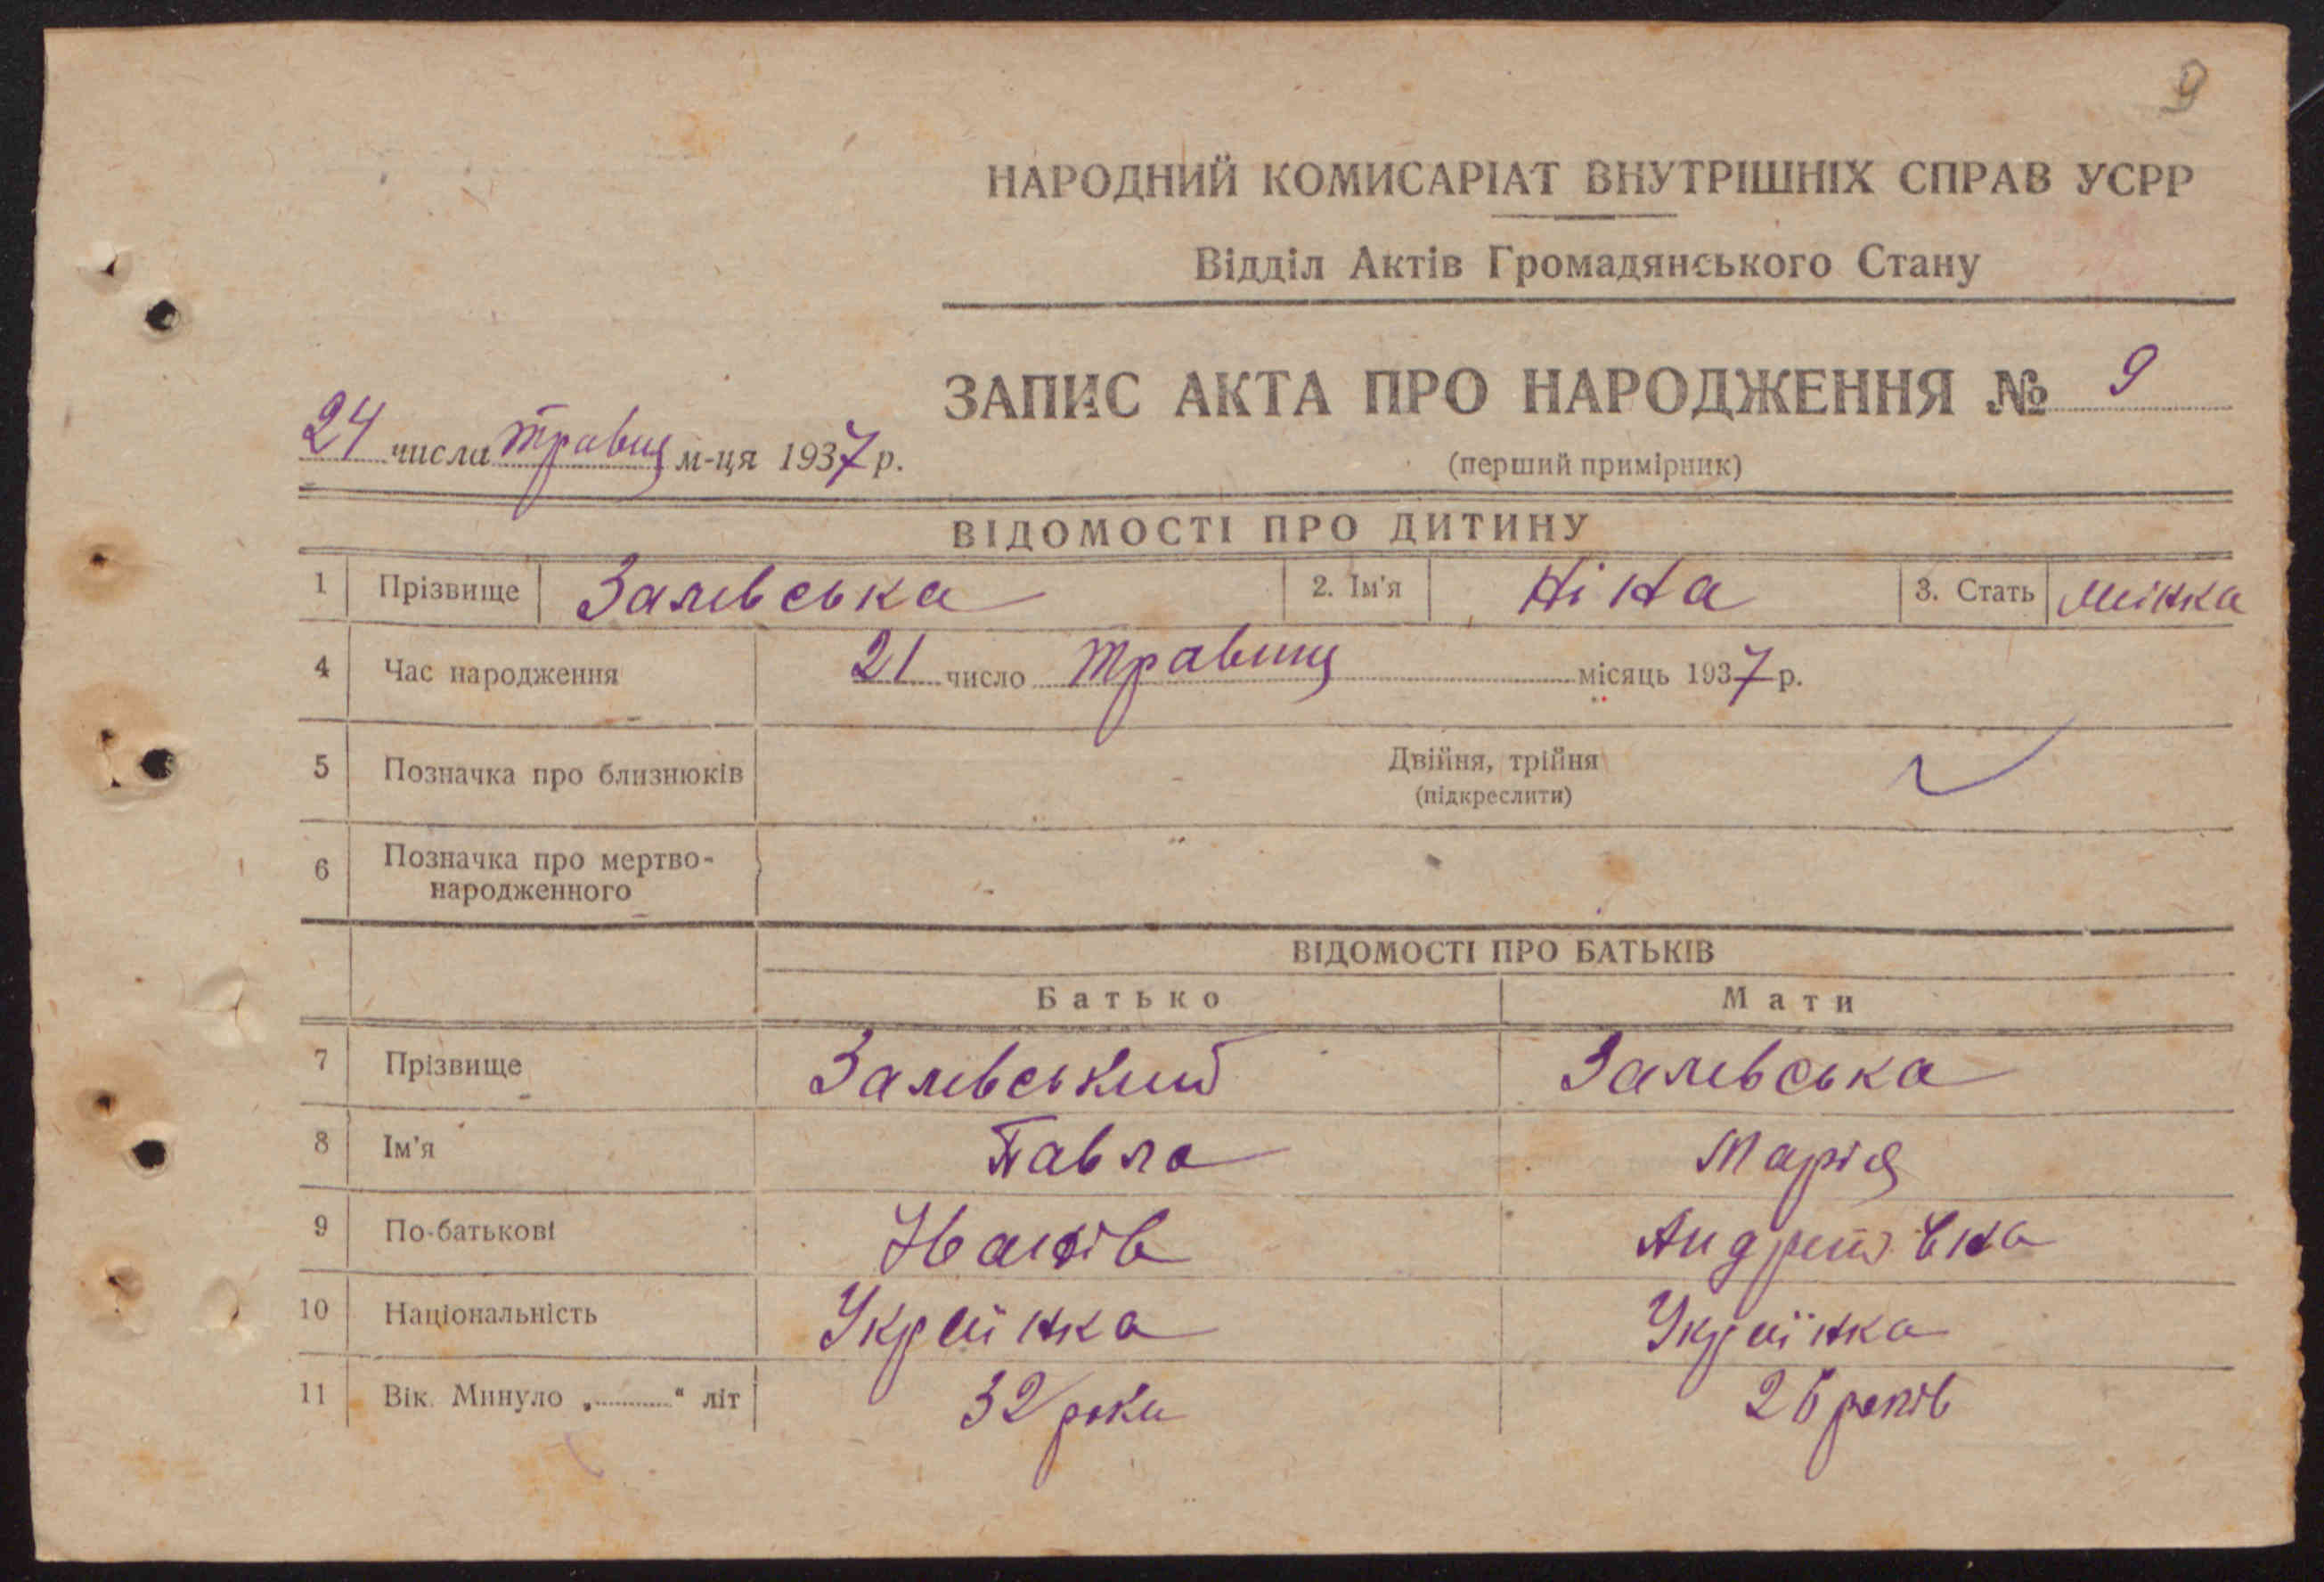 9
НАРОДНИЙ КОМИСАРІАТ ВНУТРІШНІХ СПРАВ УСРР
Відділ Актів Громадянського Стану
ЗАПИС АКТА ПРО НАРОДЖЕННЯ № 9
24 числа травня м-ця 1937 р.
(перший примірник)
ВІДОМОСТІ ПРО ДИТИНУ
1 Прізвище Залевська 2. Ім'я Ніна 3. Стать
4 Час народження 21 число травня місяць 1937 р.
5 Позначка про близнюків Двійня, трійня
(підкреслити)
6 Позначка про мертво-
народженного
ВІДОМОСТІ ПРО БАТЬКІВ
Батько Мати
7 Прізвище Залевський Залевська
8 Ім'я Павло Марія
9 По-батькові Іванів Андреївна
10 Національність Українка Українка
11 Вік. Минуло „ “ літ 32 роки 26 років